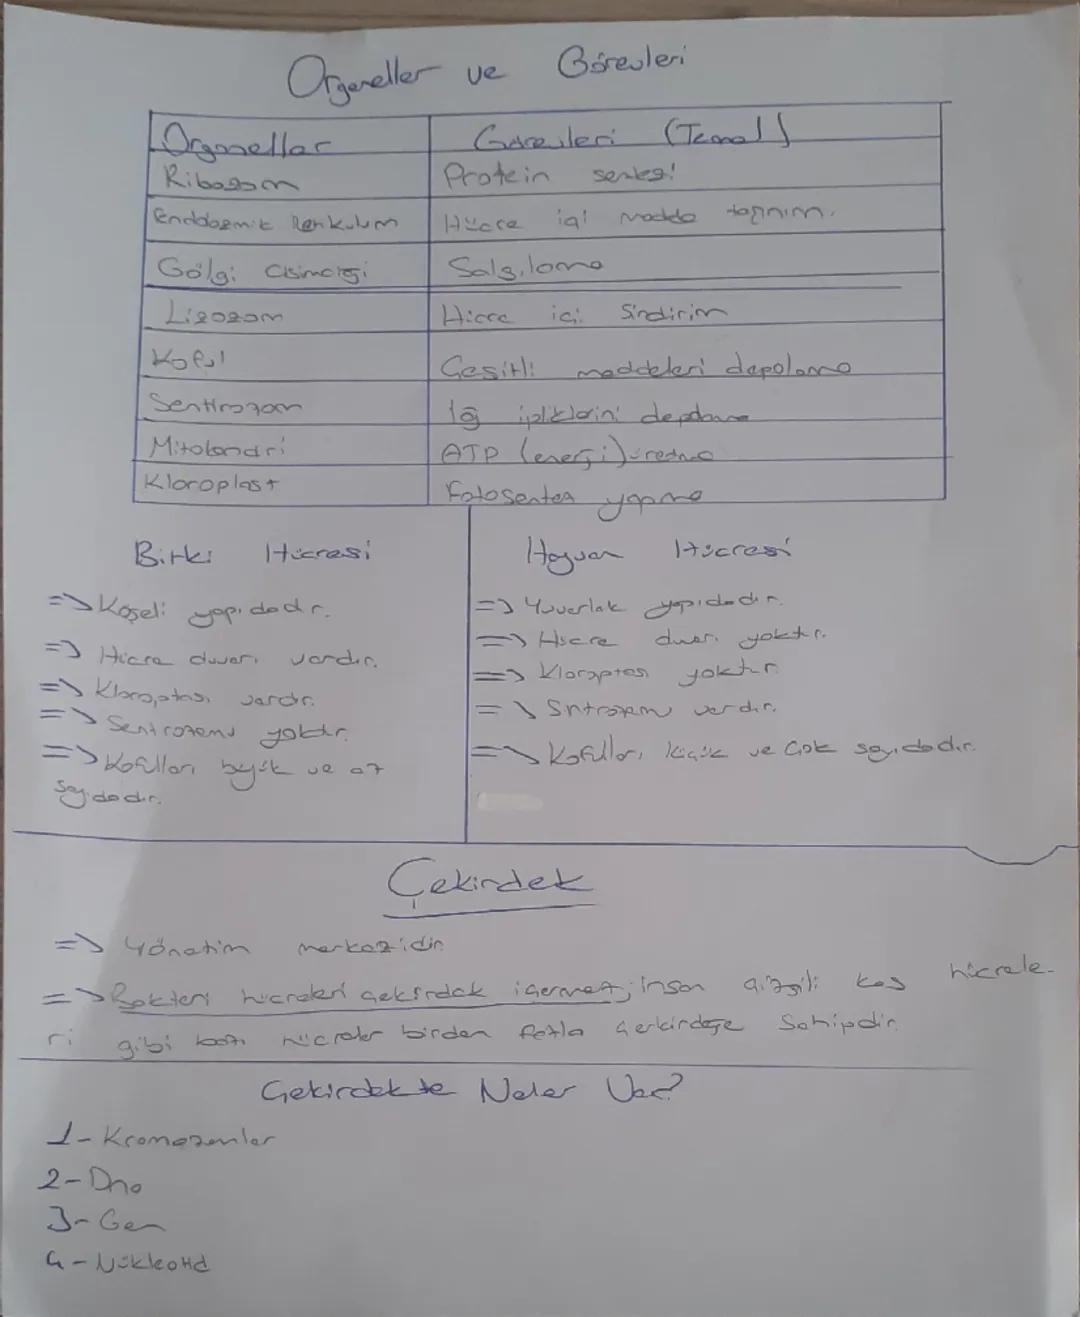 Organeller ve Görevleri
Organeller Görevleri (Temel)
Ribozom Protein sentezi
Endoplazmik Retikulum Hücre içi madde taşınım.
Golgi Cisimciği Salgılama
Lizozom Hücre içi Sindirim
Koful Çeşitli maddeleri depolama
Sentrozom İğ ipliklerini depolama
Mitokondri ATP (enerji) üretme
Kloroplast Fotosentez yapma
Bitki Hücresi
=> Köşeli yapıdadır.
=> Hücre duvarı vardır.
=> Kloroplastı vardır.
=> Sentrozomu yoktur.
=> Kofulları büyük ve az
sayıdadır.
Hayvan Hücresi
=> Yuvarlak yapıdadır.
=> Hücre duvarı yoktur.
=> Kloroplastı yoktur.
=> Sntrozomu vardır.
=> Kofulları küçük ve Çok sayıdadır.
Çekirdek
=> Yönetim merkezidir.
=> Bakteri hücreleri çekirdek içermez; insan çizgili kas hücrele-
ri gibi bazı hücreler birden fazla çekirdeğe Sahiptir.
Çekirdekte Neler Var?
1- Kromozomlar
2- Dna
3- Gen
4- Nükleotid